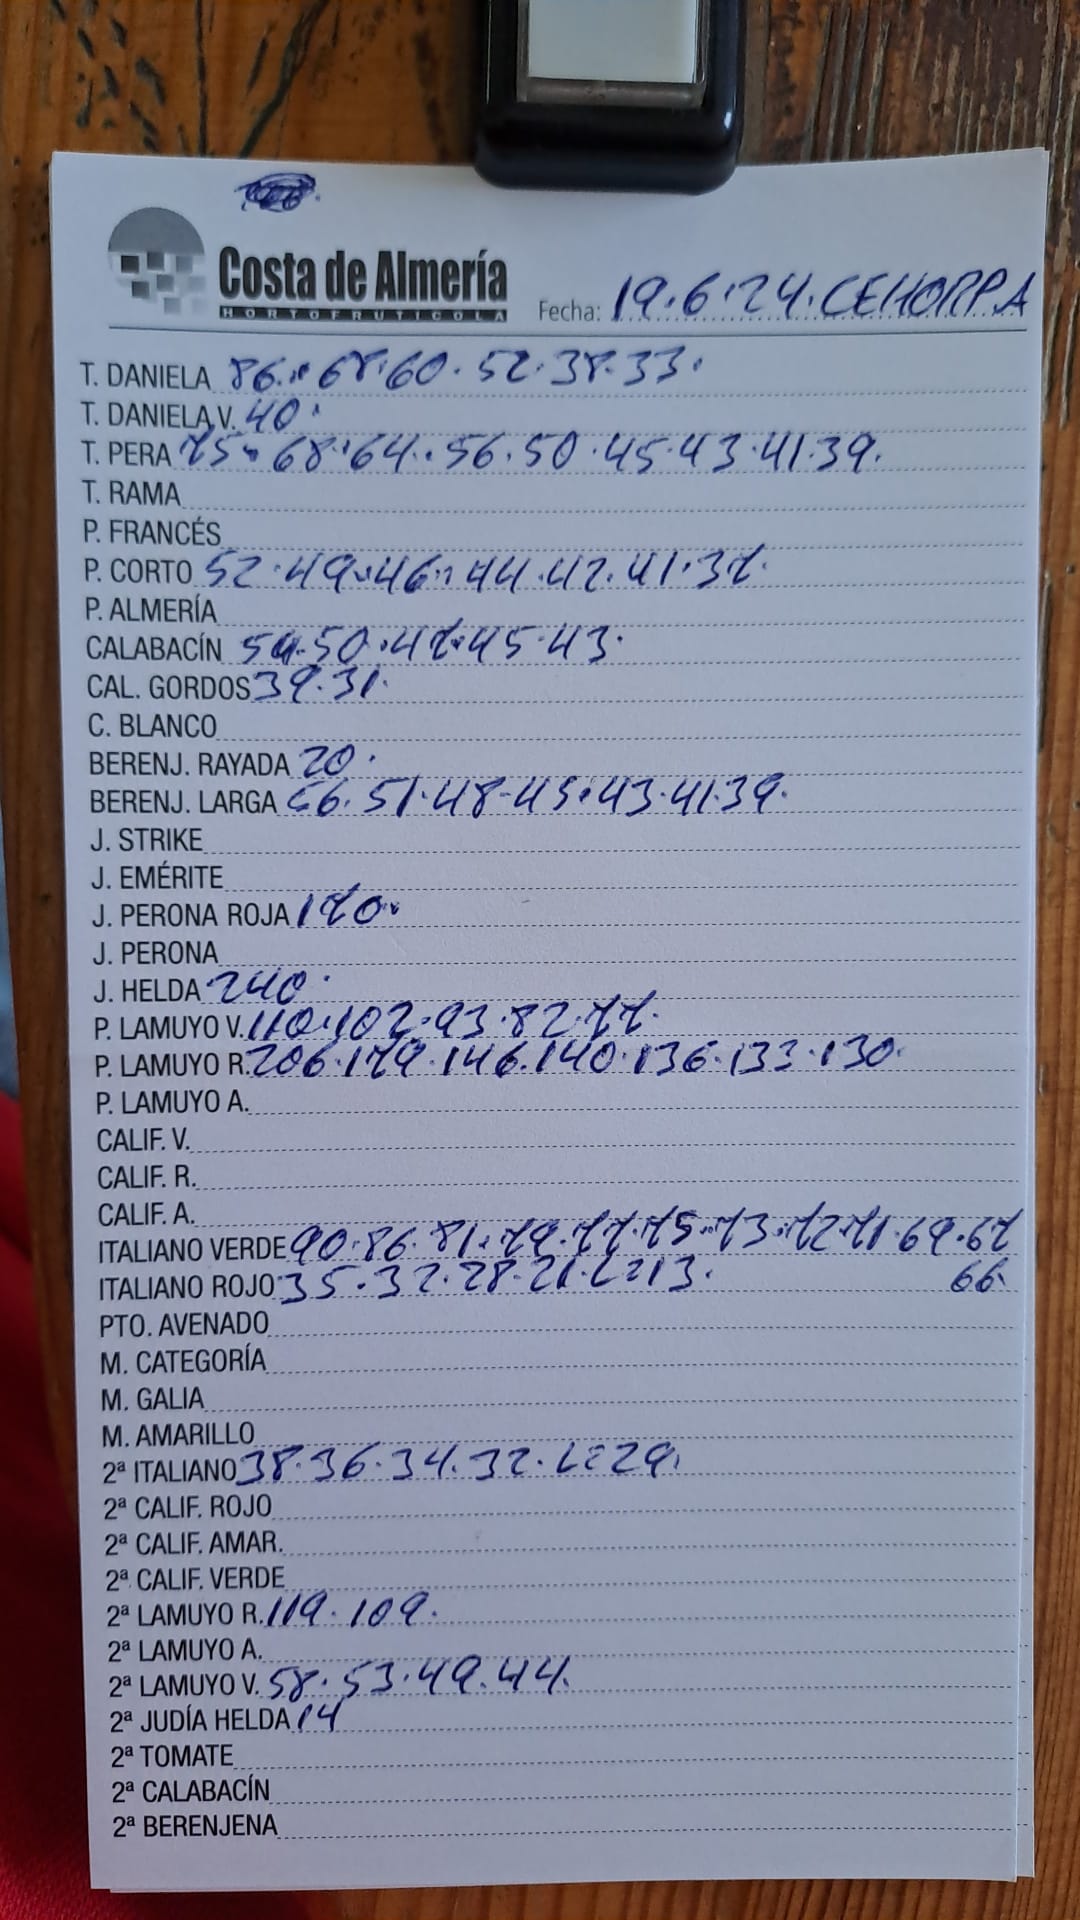 Costa de Almería
HORTOFRUTICOLA
Fecha: 19.6.24.CEHORPA
T. DANIELA 86. 68.60. 52.38.33.
T. DANELA V. 40.
T. PERA 75. 68.64. 56.50.45.43.41.39.
T. RAMA
P. FRANCÉS
P. CORTO 52.49.46.44.42.41.37.
P. ALMERÍA
CALABACÍN 54.50.47.45.43.
CAL. GORDOS 39.31.
C. BLANCO
BERENJ. RAYADA 20.
BERENJ. LARGA 56.51.48.45.43.41.39.
J. STRIKE
J. EMÉRITE
J. PERONA ROJA 170.
J. PERONA
J. HELDA 240.
P. LAMUYO V. 110.102.93.82.77.
P. LAMUYO R. 206.179.146.140.136.133.130.
P. LAMUYO A.
CALIF. V.
CALIF. R.
CALIF. A.
ITALIANO VERDE 90.86.81.79.77.75.73.72.71.69.67
ITALIANO ROJO 35.32.28.21.L=13. 66.
PTO. AVENADO
M. CATEGORÍA
M. GALIA
M. AMARILLO
2ª ITALIANO 38.36.34.32.L=29.
2ª CALIF. ROJO
2ª CALIF. AMAR.
2ª CALIF. VERDE
2ª LAMUYO R. 119.109.
2ª LAMUYO A.
2ª LAMUYO V. 58.53.49.44.
2ª JUDÍA HELDA 14
2ª TOMATE
2ª CALABACÍN
2ª BERENJENA